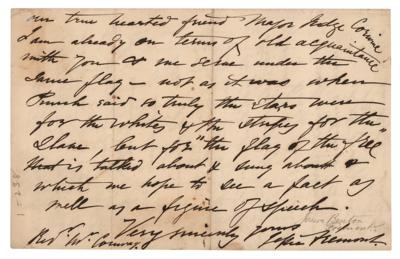 our true hearted friend Major
I am already on terms of old acquaintance
with you & we serve under the
same flag - not as it was when
Punch said so truly the stars were
for the whites & the stripes for the
Slave but for "the flag of the free"
that is talked about & sung about &
which we hope to see a fact as
well as a figure of speech.
Very sincerely yours
Jessie Benton
Fremont
Jessie Fremont
Revd Mr Conway